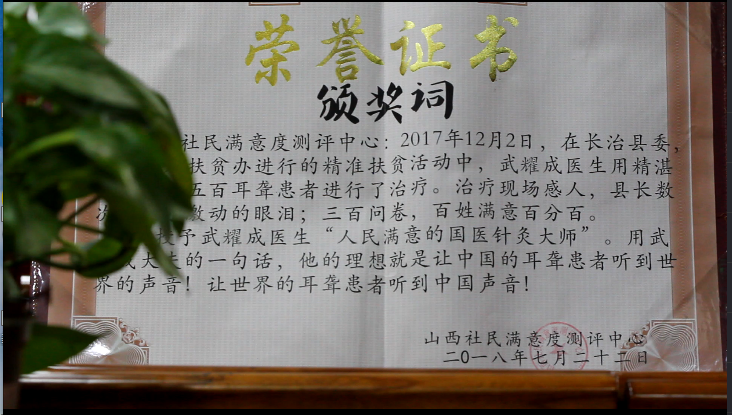 荣誉证书
颁奖词
社民满意度测评中心：2017年12月2日，在长治县委，
扶贫办进行的精准扶贫活动中，武耀成医生用精湛
五百耳聋患者进行了治疗。治疗现场感人，县长数
次 激动的眼泪；三百问卷，百姓满意百分百。
授予武耀成医生“人民满意的国医针灸大师”。用武
大夫的一句话，他的理想就是让中国的耳聋患者听到世
界的声音！让世界的耳聋患者听到中国声音！
山西社民满意度测评中心
二〇一八年七月二十二日